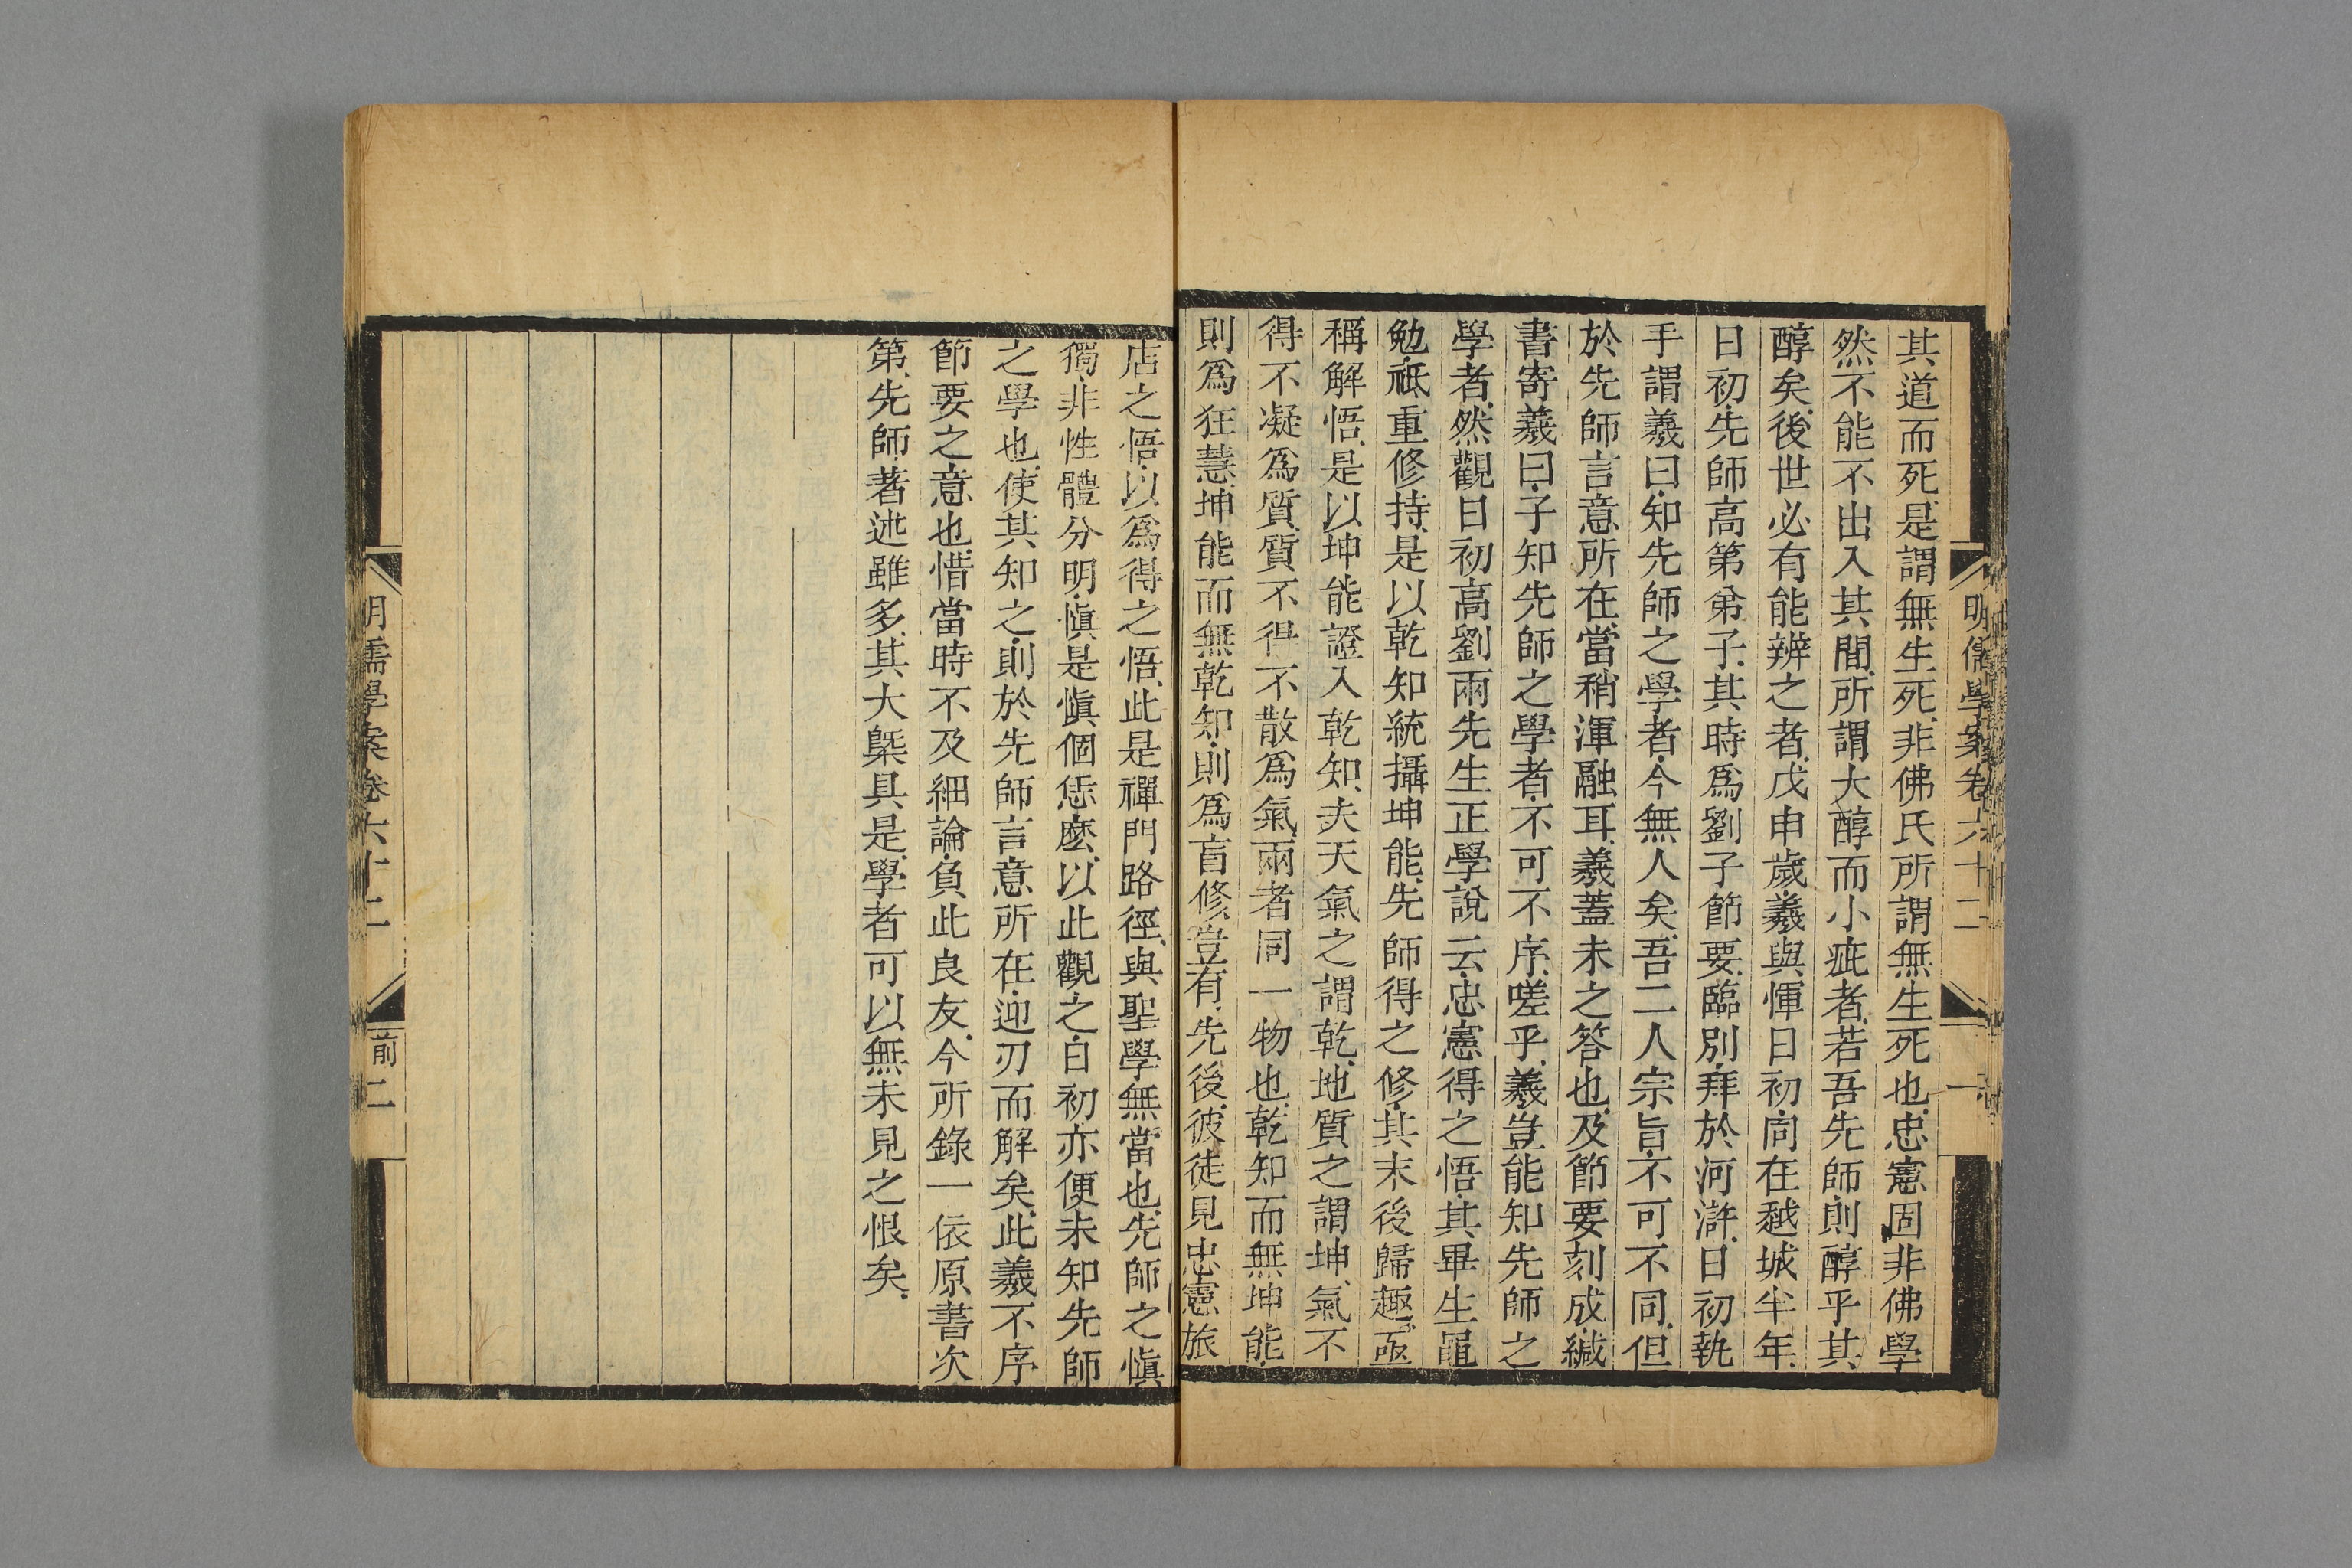 明儒學案卷六十二　一
其道而死是謂無生死非佛氏所謂無生死也忠憲固非佛學
然不能不出入其間所謂大醇而小疵者若吾先師則醇乎其
醇矣後世必有能辨之者戊申歲羲與惲日初同在越城半年
日初先師高第弟子其時爲劉子節要臨別拜於河滸日初執
手謂羲曰知先師之學者今無人矣吾二人宗旨不可不同但
於先師言意所在當稍渾融耳羲蓋未之答也及節要刻成緘
書寄羲曰子知先師之學者不可不序嗟乎羲豈能知先師之
學者然觀日初高劉兩先生正學說云忠憲得之悟其畢生黽
勉祗重修持是以乾知統攝坤能先師得之修其末後歸趣亟
稱解悟是以坤能證入乾知夫天氣之謂乾地質之謂坤氣不
得不凝爲質質不得不散爲氣兩者同一物也乾知而無坤能
則爲狂慧坤能而無乾知則爲盲修豈有先後彼徒見忠憲旅
店之悟以爲得之悟此是禪門路徑與聖學無當也先師之愼
獨非性體分明愼是愼個恁麼以此觀之日初亦便未知先師
之學也使其知之則於先師言意所在迎刃而解矣此羲不序
節要之意也惜當時不及細論負此良友今所錄一依原書次
第先師著述雖多其大槩具是學者可以無未見之恨矣
明儒學案卷六十二　前二